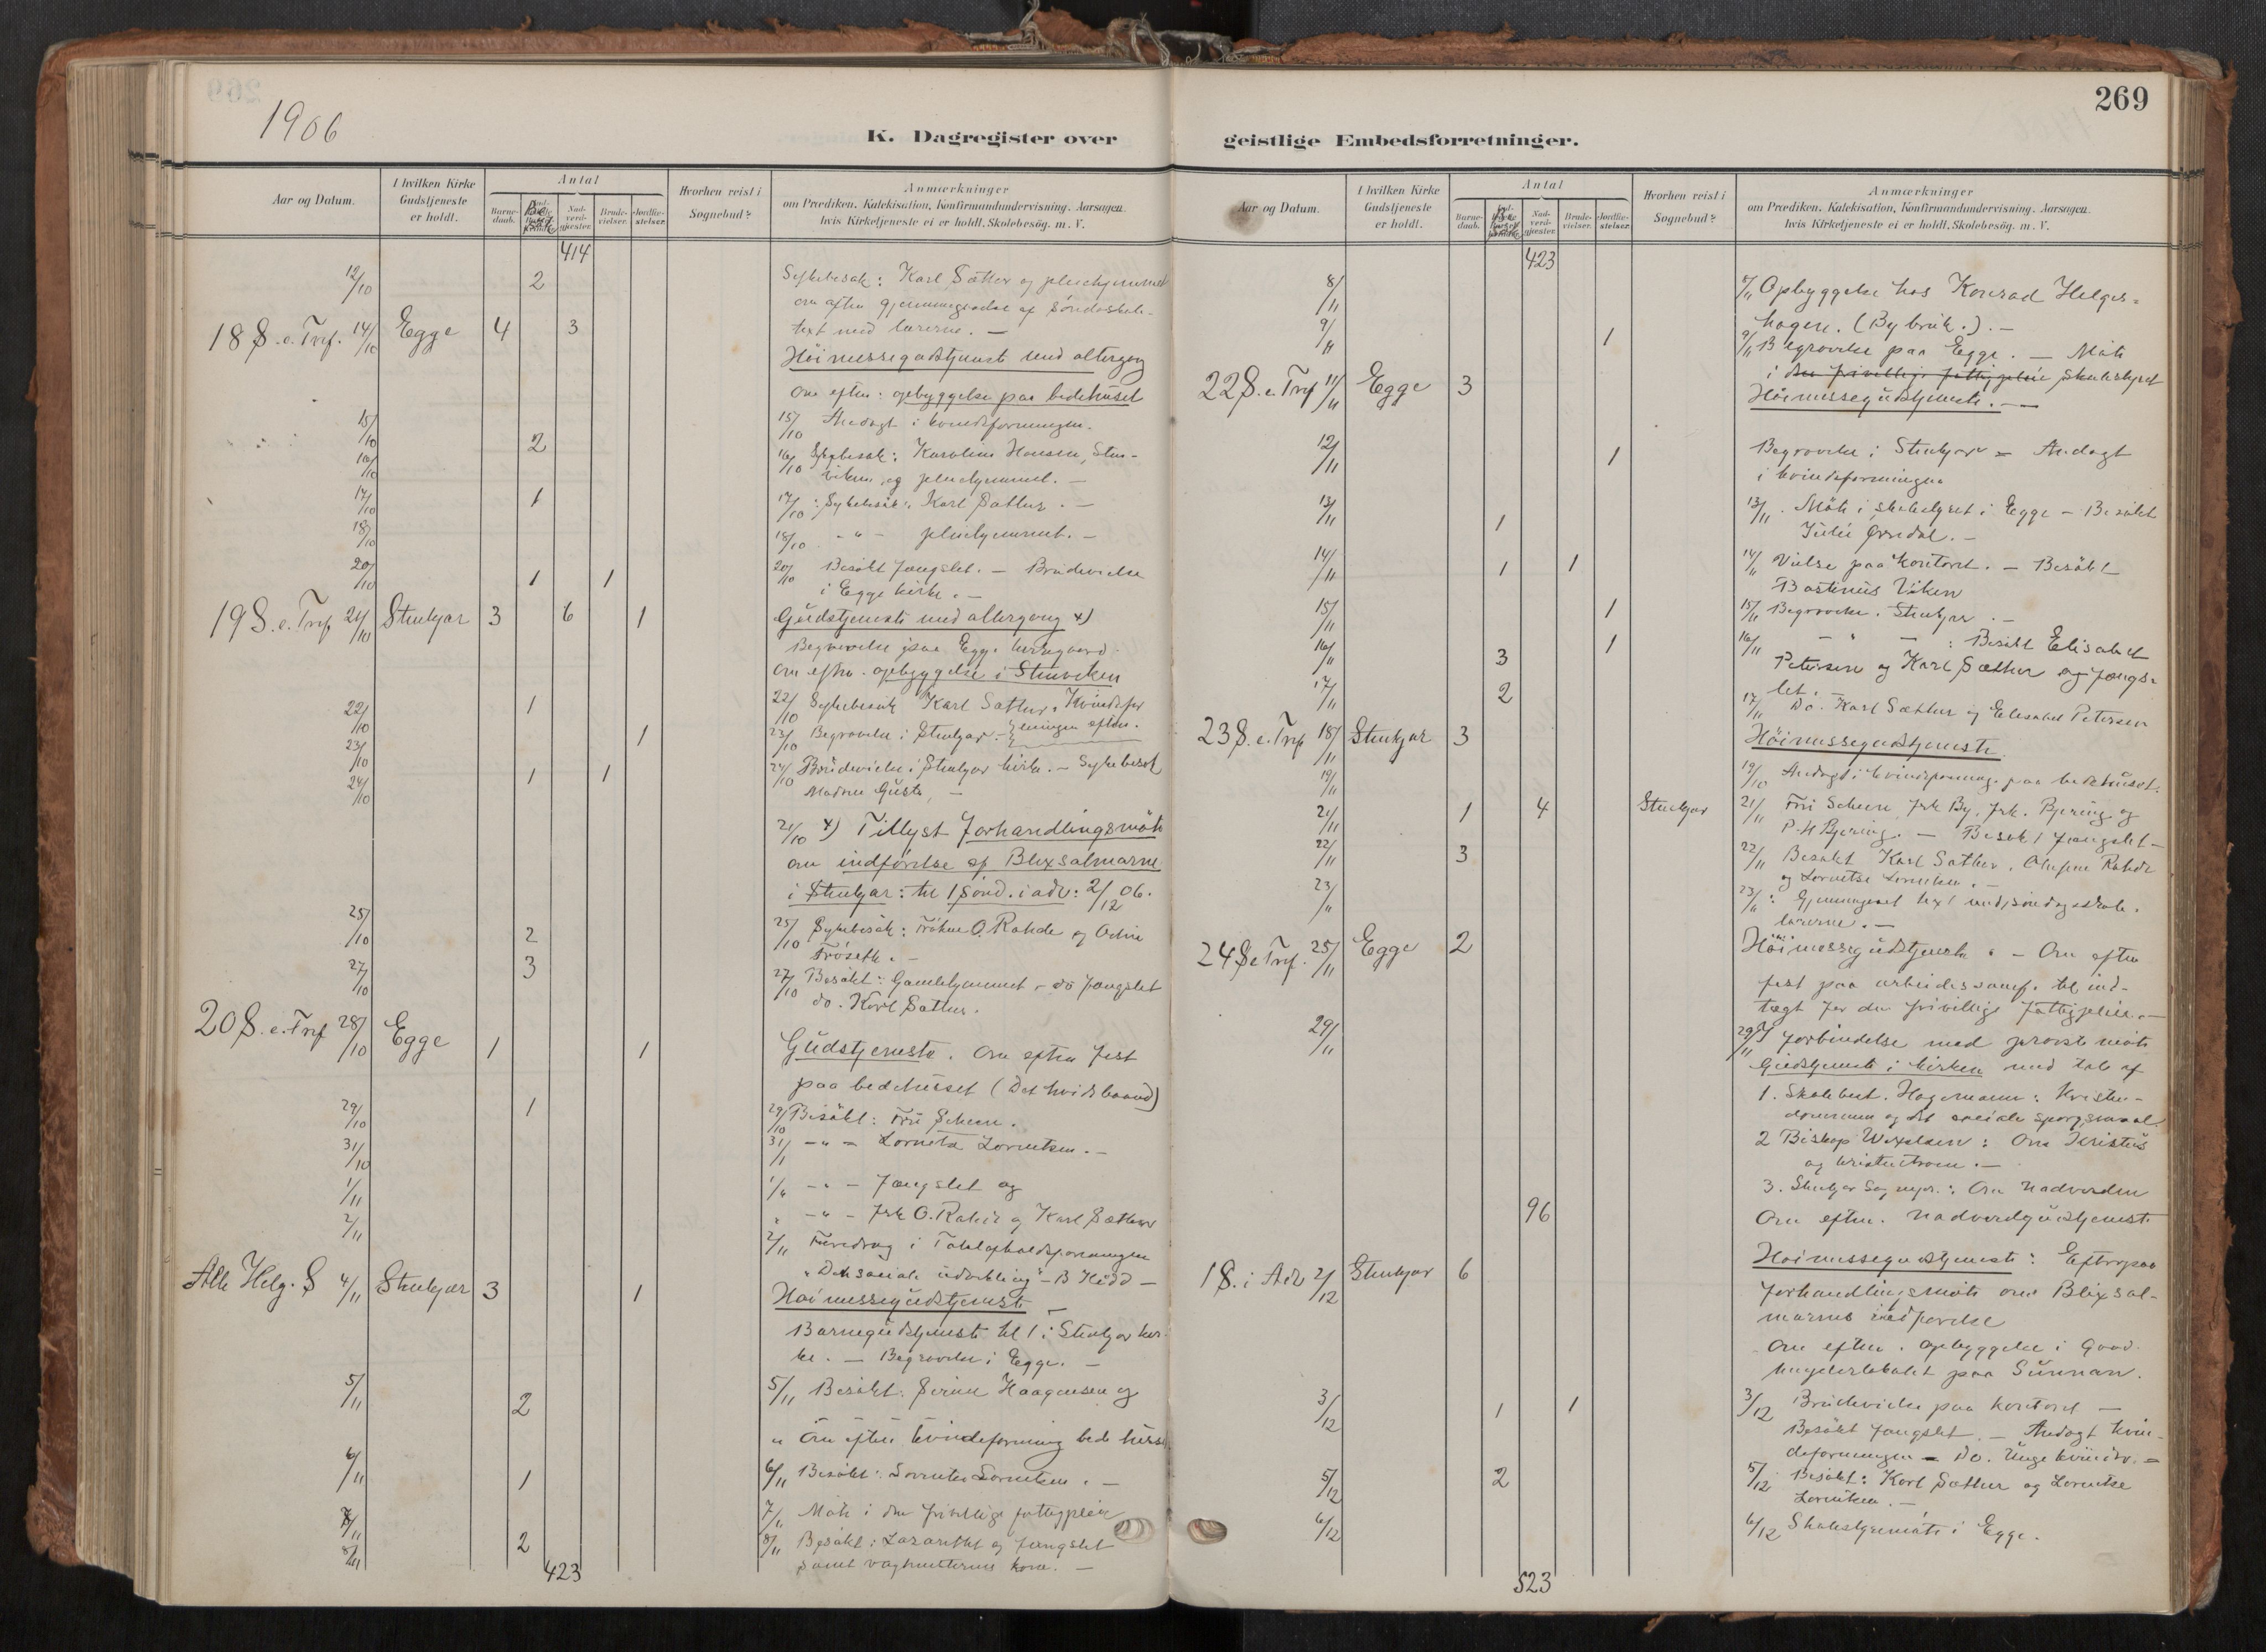 1906
K. Dagregister over
Aar og Datum.
I hvilken Kirke Gudstjeneste er holdt.
Antal
Barnedaab.
Besøk
Nadverdgjester.
Brudevielser.
Jordfæstelser.
Hvorhen reist i Sognebud?
Anmærkninger
om Prædiken. Katekisation, Konfirmandundervisning. Aarsagen. hvis Kirketjeneste ei er holdt, Skolebesög. m. V.
414
12/10 2 Sykebesøk: Karl Sæther og pleiehjemmet
om aften gjennemgaaelse af søndagsskole-
18 S. e. Tref. 14/10 Egge 4 3 text med lærerne. —
Höimessegudstjeneste med altergang
om eften: opbyggelse paa bedehuset
15/10 15/10 Andagt i kvindeforeningen.
16/10 2 16/10 Sykebesøk: Karoline Hansen, Sten-
viken og pleiehjemmet. —
17/10 1 17/10 : Sykebesøk: Karl Sæther. —
18/10 18/10 - " - pleiehjemmet. —
20/10 1 1 20/10 Besøkt fængslet. — Brudevielse
i Egge kirke. —
19 S. e. Tref 21/10 Stenkjær 3 6 1 Gudstjeneste med altergang x)
Begravelse paa Egge kirkegaard.
om eften. opbyggelse i Stenviken
22/10 1 22/10 Sykebesøk Karl Sæther. Kvindefor
23/10 1 23/10 Begravelse i Stenkjær. — eningen eften.
24/10 1 1 24/10 Brudevielse i Stenkjær kirke. — Sykebesøk
Madme Gustø, —
21/10 x) Tillyst Forhandlingsmøte
om indförelse af Blixsalmerne
i Stenkjær: til 1 Sønd. i adv: 2/12 06.
25/10 2 25/10 Sykebesøk: Frøken O. Rahde og
Frøseth. —
27/10 3 27/10 Besøkt: Gamlehjemmet — do fængslet
do. Karl Sæther.
20 S. e. Tref 28/10 Egge 1 1 Gudstjeneste. Om eften fest
paa bedehuset (Det hvite baand)
29/10 1 29/10 Besøkt: Fru Scheen.
31/10 31/1 - " - Lorentse Lorentsen. —
1/11 1/11 - " - Fængslet og
2/11 " - " - Frk O. Rahde og Karl Sæther
2/11 Foredrag i Totalafholdsforeningen
"Den sociale udvikling" —
Alle Helg. S 4/11 Stenkjær 3 1 Höimessegudstjeneste
Barnegudstjeneste kl 1 i Stenkjær kir-
ke. — Begravelse i Egge. —
5/11 2 5/11 Besøkt: Serine Haagensen og
" Om eften kvindeforening bedehuset
6/11 1 6/11 Besøkt: Lorentse Lorentsen. —
7/11 7/11 Møte i den frivillige fattigpleie
8/11 2 8/11 Besøkt: Lazarettet og fængslet
samt vagtmesterens kone. —
423
269
geistlige Embedsforretninger.
Aar og Datum.
I hvilken Kirke Gudstjeneste er holdt.
Antal
Barnedaab.
Nadverdgjester.
Brudevielser.
Jordfæstelser.
Hvorhen reist i Sognebud?
Anmærkninger
om Prædiken. Katekisation, Konfirmandundervisning. Aarsagen. hvis Kirketjeneste ei er holdt, Skolebesög. m. V.
423
8/11 8/11 Opbyggelse hos Konrad Helges-
hagen. (By bruk.). —
9/11 1 9/11 Begravelse paa Egge. — Møte
i den frivillige fattigpleie skolestyret
22 S. e Tref 11/11 Egge 3 Höimessegudstjeneste. —
12/11 1 Begravelse i Stenkjær — Andagt
i kvindeforeningen
13/11 1 13/11. Møte i skolestyret i Egge — Besøkt
Julie Ørsdal. —
14/11 1 1 14/11 Vielse paa kontoret. — Besøkt
Bastinus Viken
15/11 1 15/11 Begravelse. Stenkjær. —
16/11 3 1 16/11 - " - : Besøkt Elisabet
Petersen og Karl Sæther og fængs-
let. —
17/11 2 17/11 Do. Karl Sæther og Elisabet Petersen
23 S. e. Tref 18/11 Stenkjær 3 Höimessegudstjeneste.
19/11 19/10 Andagt i kvindeforening. paa bedehuset.
21/11 1 4 Stenkjær 21/11 Fru Scheen, Frk By, Frk. Bjering og
P. H Bjering. — Besøkt fængslet —
22/11 3 22/11 Besøkt Karl Sæther, Rahde
og Lorentse Lorentsen. —
23/11 23/11 : Gjennemgaaet text med søndagsskole-
lærerne. —
24 S e Tref. 25/11 Egge 2 Höimessegudstjeneste. — Om eften
fest paa arbeidersamf. til ind-
tægt for den frivillige fattigpleie. —
29/11 29/11 I forbindelse med provstemøte
Gudstjeneste i kirken med tale af
1. Skolebest. Hagemann: Kristen-
dommen og det sociale spørgsmaal.
2 Biskop Wexelsen: Om Kristus
og kristentroen. —
3. Stenkjær Sognepr.: Om Nadverden
96 Om eften. Nadverdgudstjeneste
1 S. i Adv 2/12 Stenkjær 6 Höimessegudstjeneste: Efterpaa
forhandlingsmøte om Blixsal-
mernes indførelse
Om eften. opbyggelse i Good-
templerlokalet paa Sunnan.
3/12 1 1 3/12 Brudevielse paa kontoret —
Besøkt fængslet. — Andagt kvin-
deforeningen — Do. Unge kvinder. —
5/12 2 5/12 Besøkt: Karl Sæther og Lorentse
Lorentsen. —
6/12 6/12 Skolestyremøte i Egge.
523